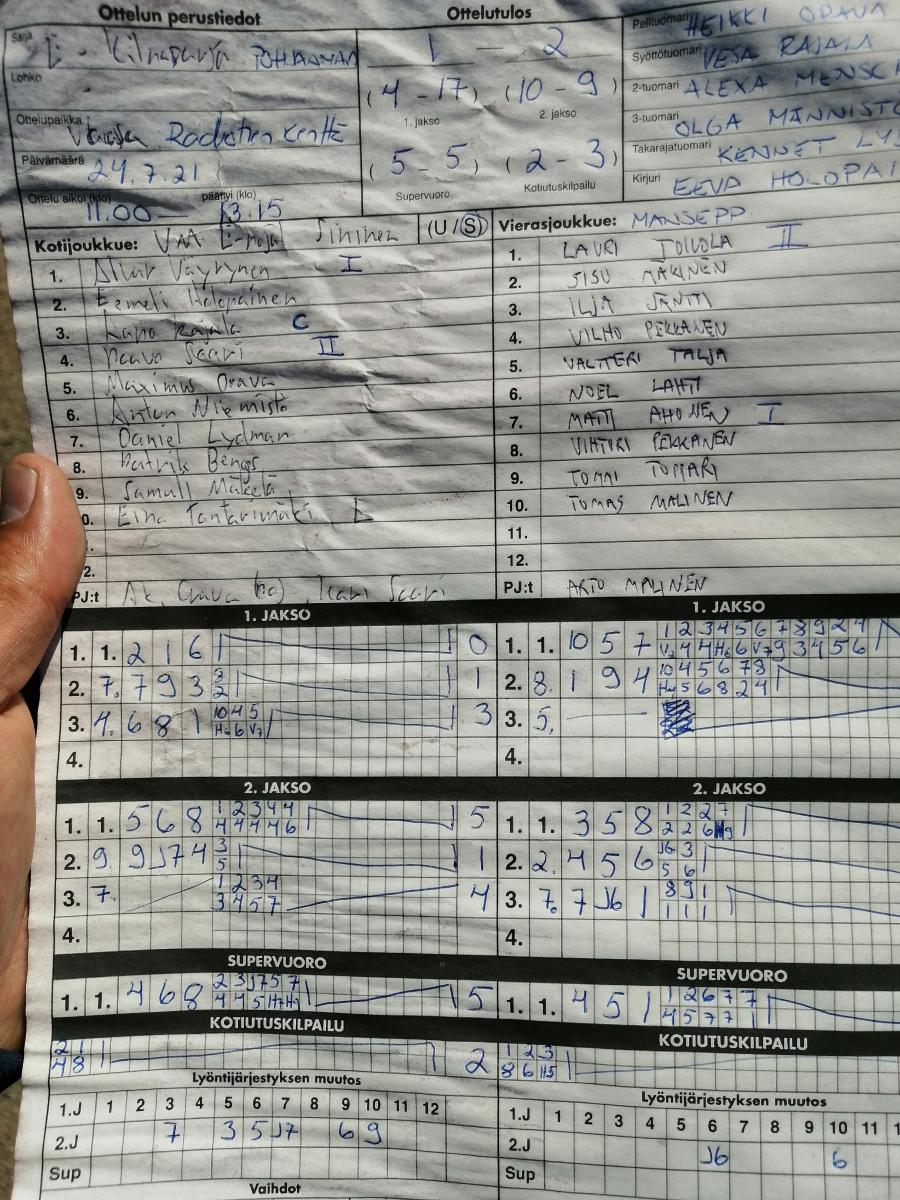 Ottelun perustiedot
Ottelutulos
Sarja E- POHJANMAA
1 - 2
Lohko
(4-17) (10-9)
1. jakso 2. jakso
Ottelupaikka Vaasa kenttä
Päivämäärä 24.7.21
(5-5) (2-3)
Supervuoro Kotiutuskilpailu
Ottelu alkoi (klo) päättyi (klo)
11.00 — 13.15
Pelituomari HEIKKI ORAVA
Syöttötuomari VESA RAJALA
2-tuomari ALEXA
3-tuomari OLGA MÄNNISTÖ
Takarajatuomari KENNET
Kirjuri EEVA
Kotijoukkue: Sininen (U/S)
1. Väyrynen I
2. Eemeli Holopainen
3. Rajala C
4. Paavo Saari II
5. Maximus Orava
6. Anton Niemistö
7. Daniel Lydman
8. Patrik Bengs
9. Mäkelä
0. Eino L
.
2.
PJ:t Saari
Vierasjoukkue: MANSEPP
1. LAURI TOIVOLA II
2. SISU MÄKINEN
3. ILJA JÄNTTI
4. VILHO PEKKANEN
5. VALTTERI TALJA
6. NOEL LAHTI
7. MATTI AHONEN I
8. VIHTORI PEKKANEN
9. TOMMI TOMARI
10. TOMAS MALINEN
11.
12.
PJ:t ARTO MALINEN
1. JAKSO
1. 1. 2 1 6 0
2. 7. 7 9 3 8 1
2
3. 4. 6 8 1 10 4 5 3
6
4.
1. JAKSO
1. 1. 10 5 7 1 2 3 4 5 6 7 8 9 2 4
4 4 6 9 3 4 5 6
2. 8. 1 9 4 10 4 5 6 7 8
5 6 8 2 4
3. 5.
4.
2. JAKSO
1. 1. 5 6 8 1 2 3 4 4 5
4 4 4 4 6
2. 9. 9 J7 4 3 1
5
3. 7. 1 2 3 4 4
3 4 5 7
4.
2. JAKSO
1. 1. 3 5 8 1 2 2 7
2 2 6
2. 2. 4 5 6 J6 3
5 6
3. 7. 7 J6 1 8 9 1
1 1 1
4.
SUPERVUORO
1. 1. 4 6 8 2 3 J7 5 7 5
4 4 5
SUPERVUORO
1. 1. 4 5 1 1 2 6 7 7
4 5 7 7 1
KOTIUTUSKILPAILU
2 1 2
4 8
KOTIUTUSKILPAILU
1 2 3
8 6 H5
Lyöntijärjestyksen muutos
1.J 1 2 3 4 5 6 7 8 9 10 11 12
2.J 7 3 5 J7 6 9
Sup
Lyöntijärjestyksen muutos
1.J 1 2 3 4 5 6 7 8 9 10 11
2.J J6 6
Sup
Vaihdot